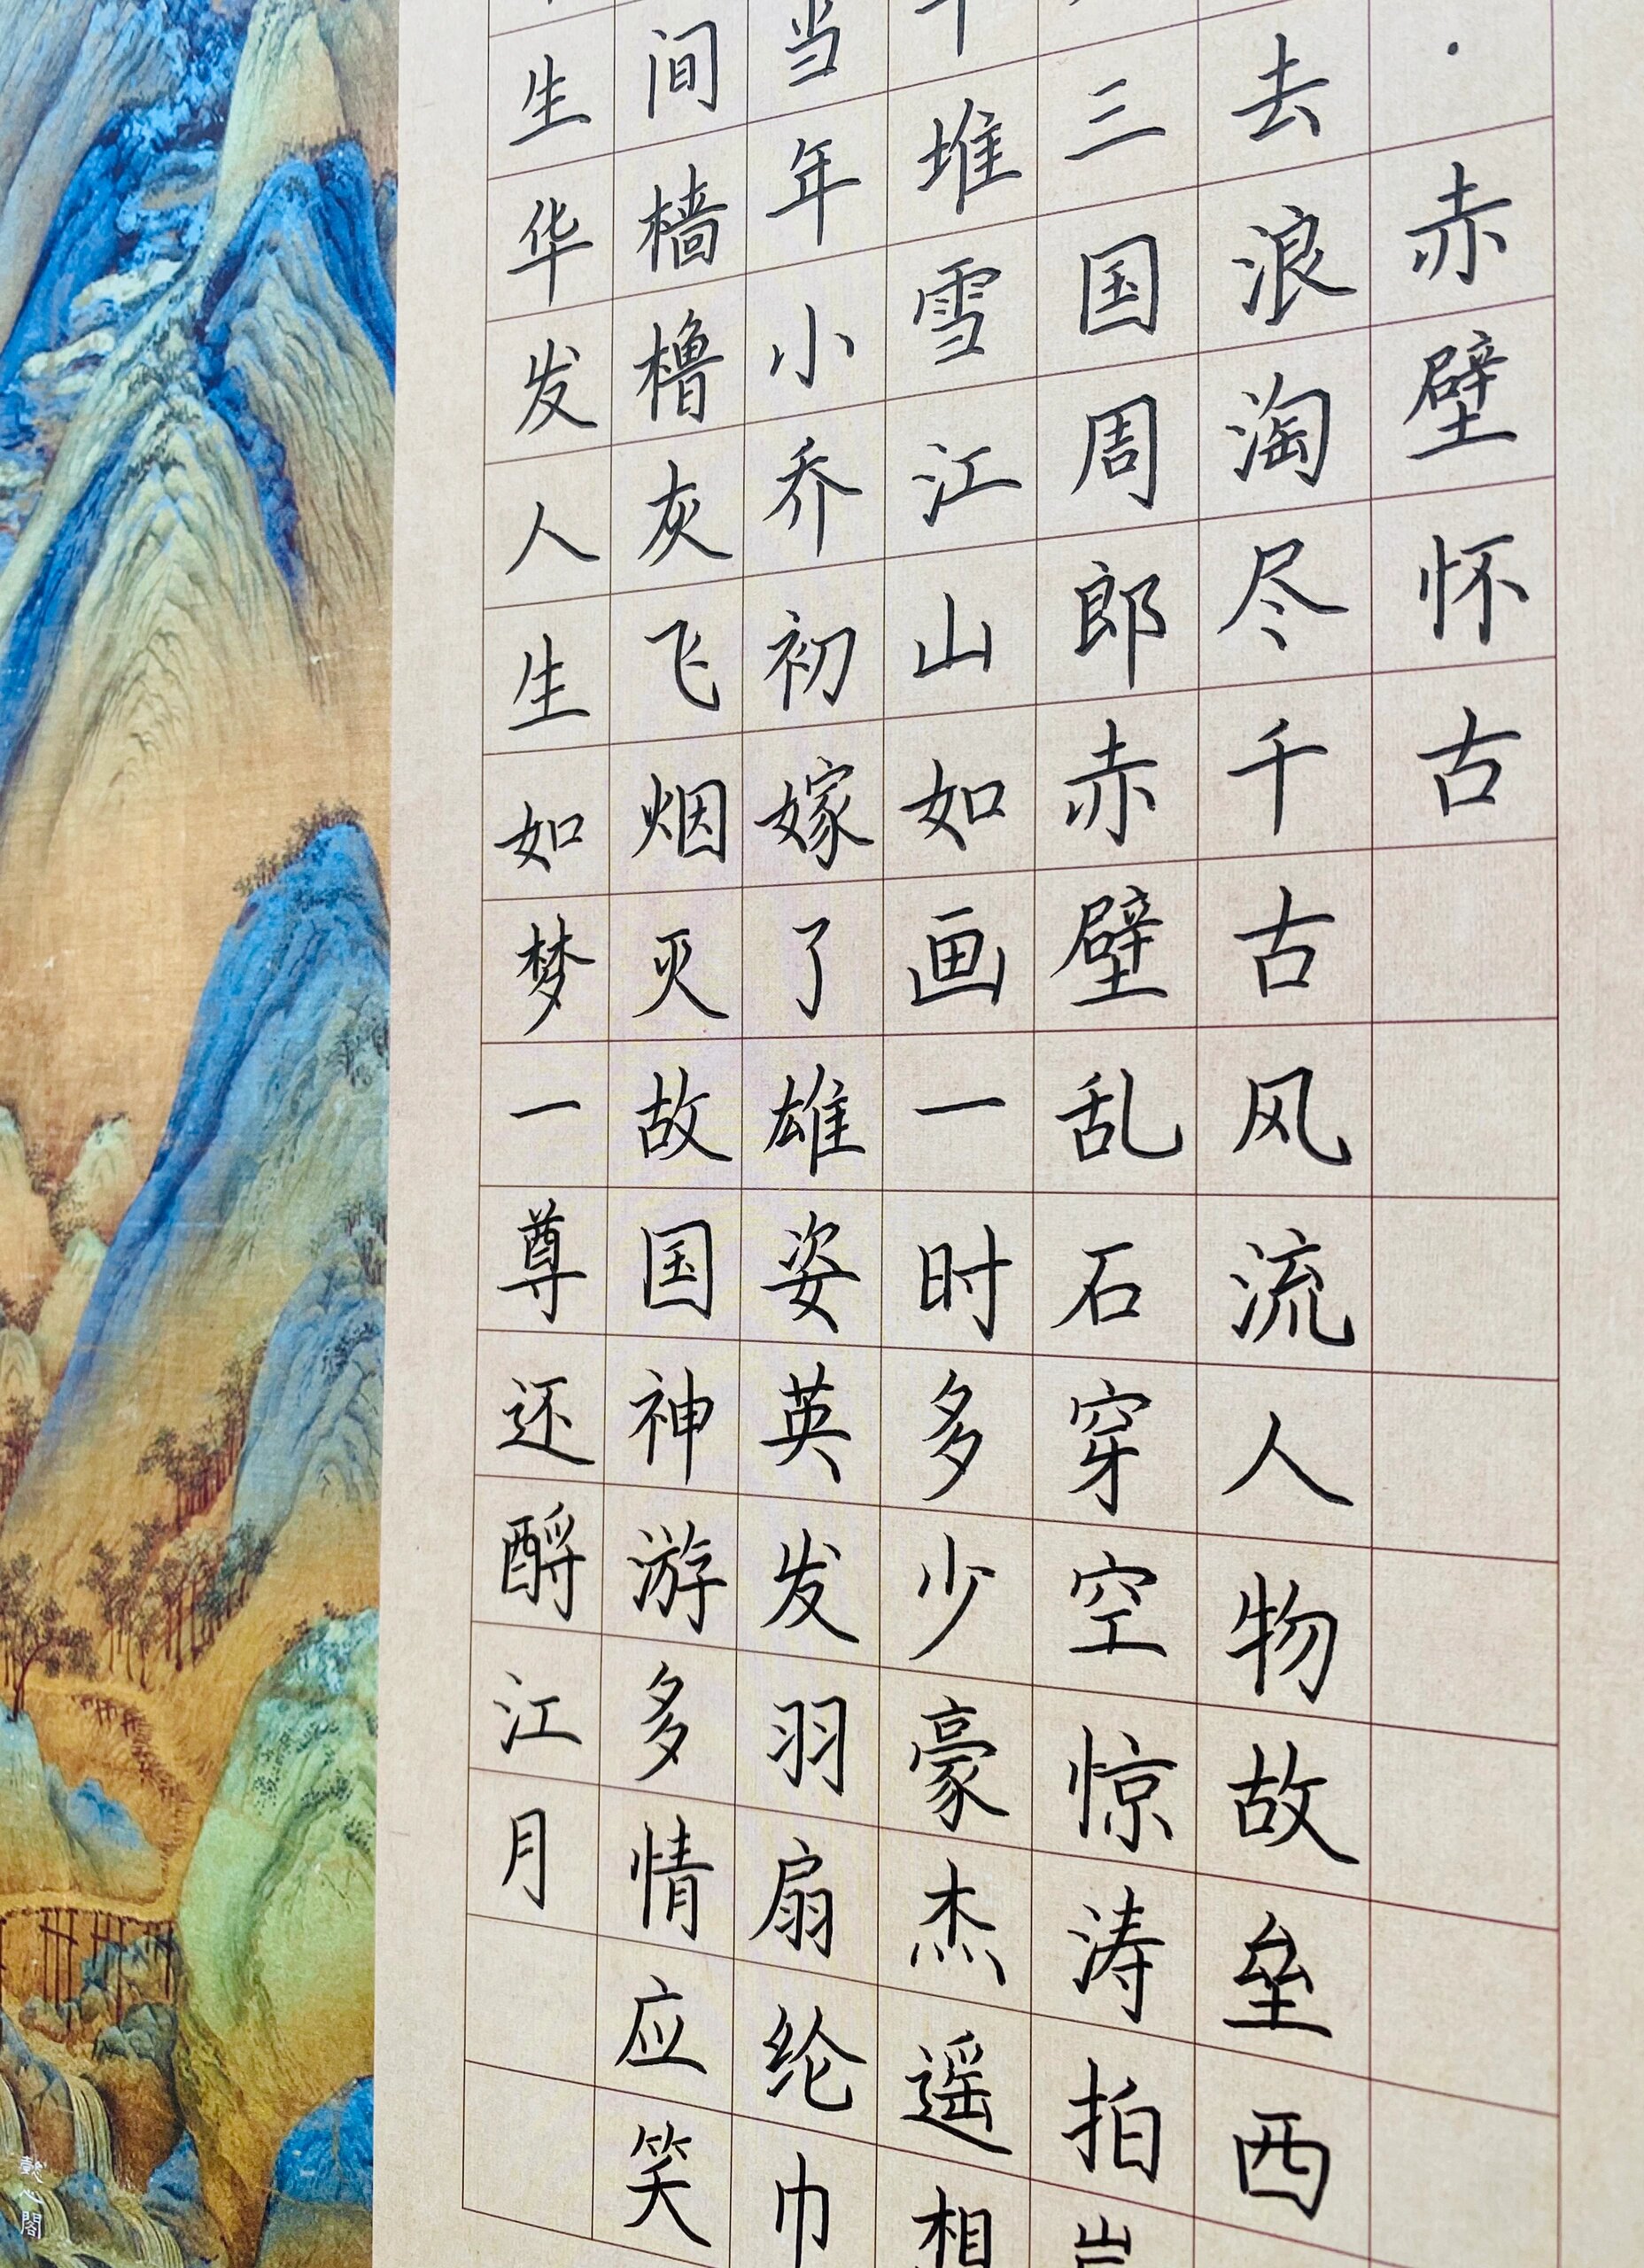 ·赤壁怀古
去浪淘尽千古风流人物故垒西
三国周郎赤壁乱石穿空惊涛拍岸
堆雪江山如画一时多少豪杰遥相
当年小乔初嫁了雄姿英发羽扇纶巾
间樯橹灰飞烟灭故国神游多情应笑
生华发人生如梦一尊还酹江月